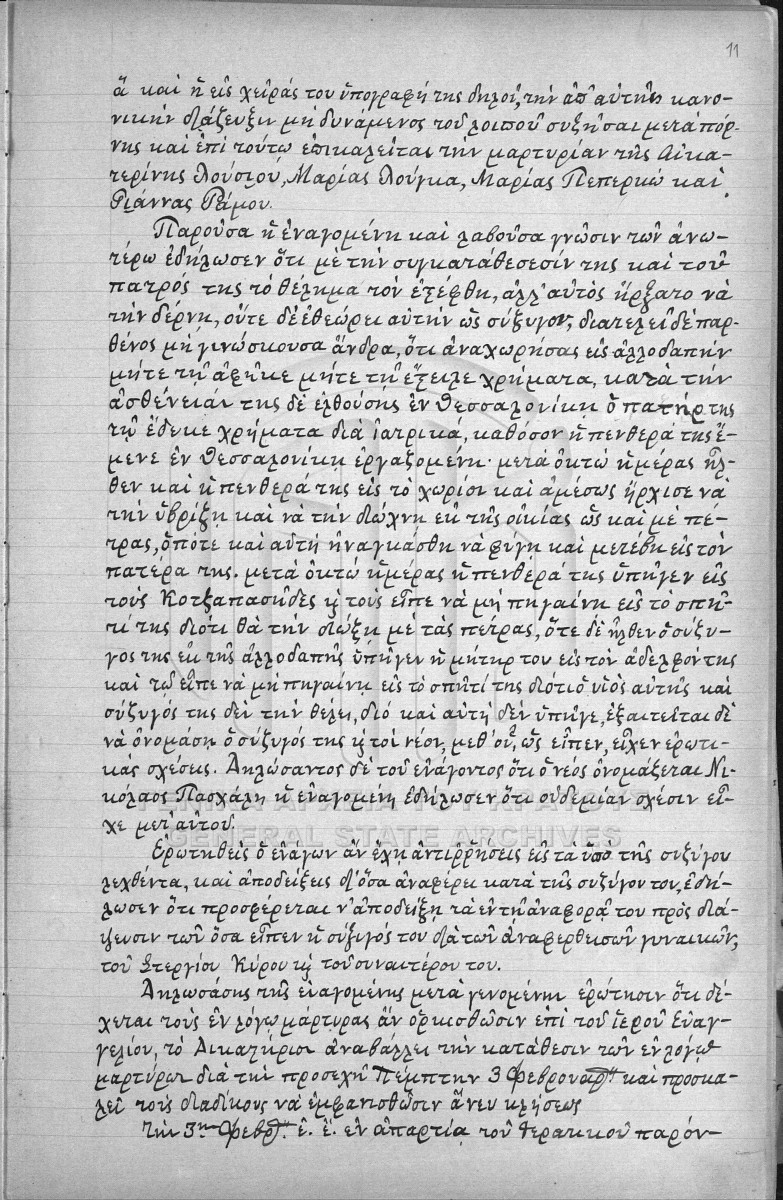 11
ἃ καὶ ἡ εἰς χεῖράς του ὑπογραφή της δηλοῖ, τὴν ἀπ' αὐτῆς κανο-
νικὴν διάζευξιν μὴ δυνάμενος τοῦ λοιποῦ συζῆσαι μετὰ πόρ-
νης καὶ ἐπὶ τούτῳ ἐπικαλεῖται τὴν μαρτυρίαν τῆς Αἰκα-
τερίνης Μαρίας Μαρίας Πεπερκώ καὶ
Γιάννας Ράμου.
Παροῦσα ἡ ἐναγομένη καὶ λαβοῦσα γνῶσιν τῶν ἀνω-
τέρω ἐδήλωσεν ὅτι μὲ τὴν συγκατάθεσεσίν της καὶ τοῦ
πατρός της τὸ θέλημα τὸν ἐστέφθη, ἀλλ' αὐτὸς ἤρξατο νὰ
τὴν δέρνῃ, οὔτε δὲ ἐθεώρει αὐτὴν ὡς σύζυγον, διατελεῖ δὲ παρ-
θένος μὴ γινώσκουσα ἄνδρα, ὅτι ἀναχωρήσας εἰς ἀλλοδαπὴν
μήτε τῇ ἀφῆκε μήτε τῇ ἔστειλε χρήματα, κατὰ τὴν
ἀσθένειάν της δὲ ἐλθούσης ἐν Θεσσαλονίκῃ ὁ πατήρ της
τῇ ἔδωκε χρήματα διὰ ἰατρικά, καθόσον ἡ πενθερά της ἔ-
μενε ἐν Θεσσαλονίκῃ ἐργαζομένη· μετὰ ὀκτὼ ἡμέρας ἦλ-
θεν καὶ ἡ πενθερά της εἰς τὸ χωρίον καὶ ἀμέσως ἤρχισε νὰ
τὴν ὑβρίζῃ καὶ νὰ τὴν διώχνῃ ἐκ τῆς οἰκίας ὡς καὶ μὲ πέ-
τρας, ὁπότε καὶ αὐτὴ ἠναγκάσθη νὰ φύγῃ καὶ μετέβη εἰς τὸν
πατέρα της. μετὰ ὀκτὼ ἡμέρας ἡ πενθερά της ὑπῆγεν εἰς
τοὺς Κοτζαπασῆδες κ τοὺς εἶπε νὰ μὴ πηγαίνῃ εἰς τὸ σπῆ-
τί της διότι θὰ τὴν διώξῃ μὲ τὰς πέτρας, ὅτε δὲ ἦλθεν ὁ σύζυ-
γός της ἐκ τῆς ἀλλοδαπῆς ὑπῆγεν ἡ μήτηρ του εἰς τὸν ἀδελφόν της
καὶ τῷ εἶπε νὰ μὴ πηγαίνῃ εἰς τὸ σπῆτί της διότι ὁ υἱὸς αὐτῆς καὶ
σύζυγός της δὲν τὴν θέλει, διὸ καὶ αὐτὴ δὲν ὑπῆγε, ἐξαιτεῖται δὲ
νὰ ὀνομάσῃ ὁ σύζυγός της κ τὸν νέον, μεθ' οὗ, ὡς εἶπεν, εἶχεν ἐρωτι-
κὰς σχέσεις. Δηλώσαντος δὲ τοῦ ἐνάγοντος ὅτι ὁ νέος ὀνομάζεται Νι-
κόλαος Πασχάλη ἡ ἐναγομένη ἐδήλωσεν ὅτι οὐδεμίαν σχέσιν εἶ-
χε μετ' αὐτοῦ.
Ἐρωτηθεὶς ὁ ἐνάγων ἂν ἔχῃ ἀντιρρήσεις εἰς τὰ ὑπὸ τῆς συζύγου
λεχθέντα, καὶ ἀποδείξεις δι' ὅσα ἀναφέρει κατὰ τῆς συζύγου του, ἐδή-
λωσεν ὅτι προσφέρεται ν' ἀποδείξῃ τὰ ἐν τῇ ἀναφορᾷ του πρὸς διά-
ψευσιν τῶν ὅσα εἶπεν ἡ σύζυγός του διὰ τῶν ἀναφερθεισῶν γυναικῶν,
τοῦ Στεργίου Κύρου κ τοῦ συναιτέρου του.
Δηλωσάσης τῆς ἐναγομένης μετὰ γενομένην ἐρώτησιν ὅτι δέ-
χεται τοὺς ἐν λόγῳ μάρτυρας ἂν ὁρκισθῶσιν ἐπὶ τοῦ ἱεροῦ Εὐαγ-
γελίου, τὸ Δικαστήριον ἀναβάλλει τὴν κατάθεσιν τῶν ἐν λόγῳ
μαρτύρων διὰ τὴν προσεχῆ Πέμπτην 3 Φεβρουαρίου καὶ προσκα-
λεῖ τοὺς διαδίκους νὰ ἐμφανισθῶσιν ἄνευ κλήσεως
Τὴν 3ην Φεβρ. ἐ. ἔ. ἐν ἀπαρτίᾳ τοῦ ἱερατικοῦ παρόν-
ΓΕΝΙΚΑ ΑΡΧΕΙΑ ΤΟΥ ΚΡΑΤΟΥΣ
GENERAL STATE ARCHIVES